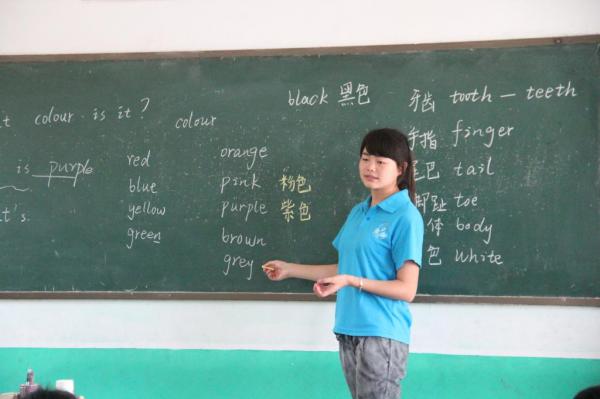 colour is it?
is purple
's
colour
red
blue
yellow
green
orange
pink 粉色
purple 紫色
brown
grey
black 黑色
牙齿 tooth - teeth
手指 finger
巴 tail
脚趾 toe
体 body
色 white